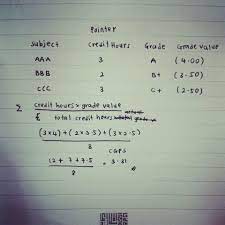 Pointer
Subject Credit Hours Grade Grade Value
AAA 3 A (4.00)
BBB 2 B+ (3.50)
CCC 3 C+ (2.50)
Σ credit hours x grade value
£ total credit hours
(3x4) + (2x3.5) + (3x2.5)
8
CGPS
12 + 7 + 7.5 = 3.31
8